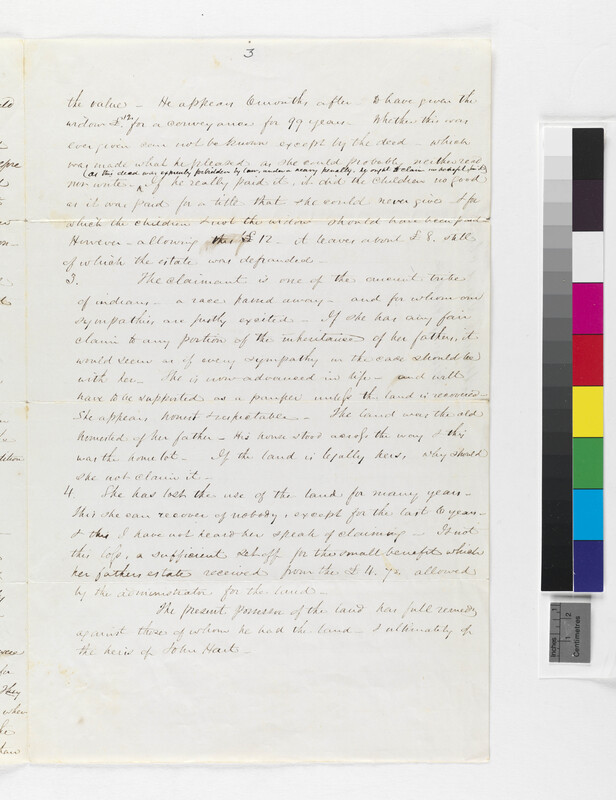 3
the value - He appears 6 months after - to have given the
widow £12 for a conveyance for 99 years. Whether this was
ever given can not be known except by the deed - which
was made what he pleased as she could probably neither read
(as this deed was expressly forbidden by law, under a heavy penalty,
nor write - If he really paid it, it did the children no good
as it was paid for a title that she could never give & for
which the children & not the widow should have been paid -
However - allowing this £12 - it leaves about £8. still
of which the estate was defrauded -
3. The claimant is one of the ancient tribe
of indians - a race passed away - and for whom our
sympathies are justly excited - If she has any fair
claim to any portion of the inheritance of her fathers, it
would seem as if every sympathy in the case should be
with her - She is now advanced in life - and will
have to be supported as a pauper unless the land is recovered -
She appears honest & respectable - The land was the old
homested of her father - His house stood across the way & this
was the home lot - If the land is legally hers, why should
she not claim it -
4. She has lost the use of the land for many years -
This she can recover of nobody, except for the last 6 years -
& this I have not heard her speak of claiming - Is not
this loss, a sufficient setoff for the small benefit which
her fathers estate received from the £4. 7/2 allowed
by the administrator for the land -
The present possessor of the land has full remedy
against those of whom he had the land - & ultimately of
the heirs of John Hart -
Inches
1
2
Centimetres